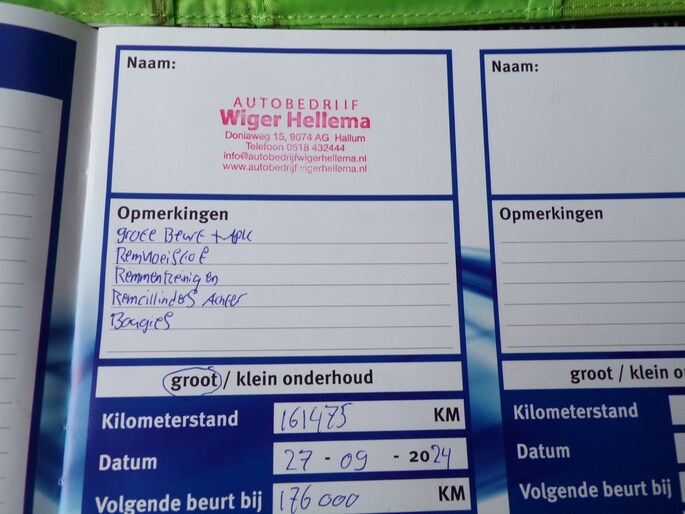 Naam:
AUTOBEDRIJF
Wiger Hellema
Doniaweg 15, 9074 AG Hallum
Telefoon 0518 432444
info@autobedrijfwigerhellema.nl
www.autobedrijfwigerhellema.nl
Opmerkingen
grote Beurt + Apk
Remvloeistof
Remmen Reinigen
Remcillinders Achter
Bougies
groot / klein onderhoud
Kilometerstand 161475 KM
Datum 27 - 09 - 2024
Volgende beurt bij 176000 KM
Naam:
Opmerkingen
groot / klein o
Kilometerstand
Datum
Volgende beurt bij